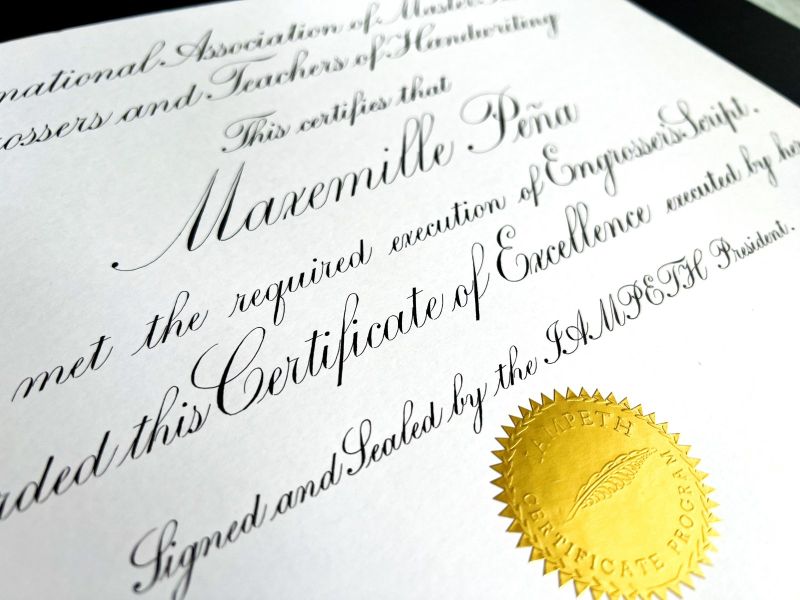 national Association of Master
ossers and Teachers of Handwriting
This certifies that
Maxemille Peña
met the required execution of Engrosser's Script.
rded this Certificate of Excellence executed by her
Signed and Sealed by the IAMPETH President.
IAMPETH
CERTIFICATE PROGRAM